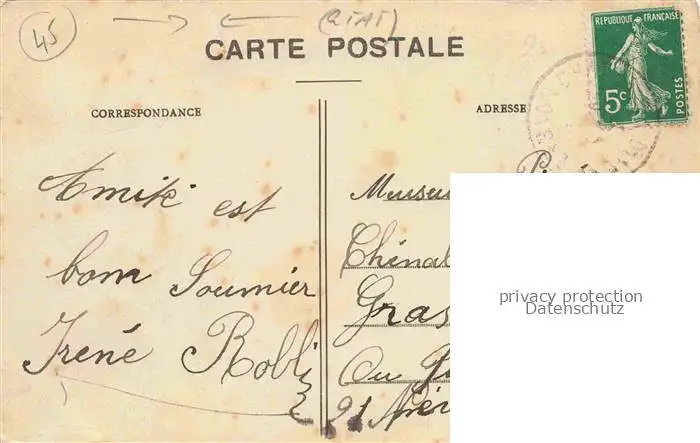 45
(ETAT)
CARTE POSTALE
RÉPUBLIQUE FRANÇAISE
5c
POSTES
CORRESPONDANCE
ADRESSE
Amitié est
bom Soumier
Irené Robli
Chénal
Gras
Ou
21
privacy protection
Datenschutz